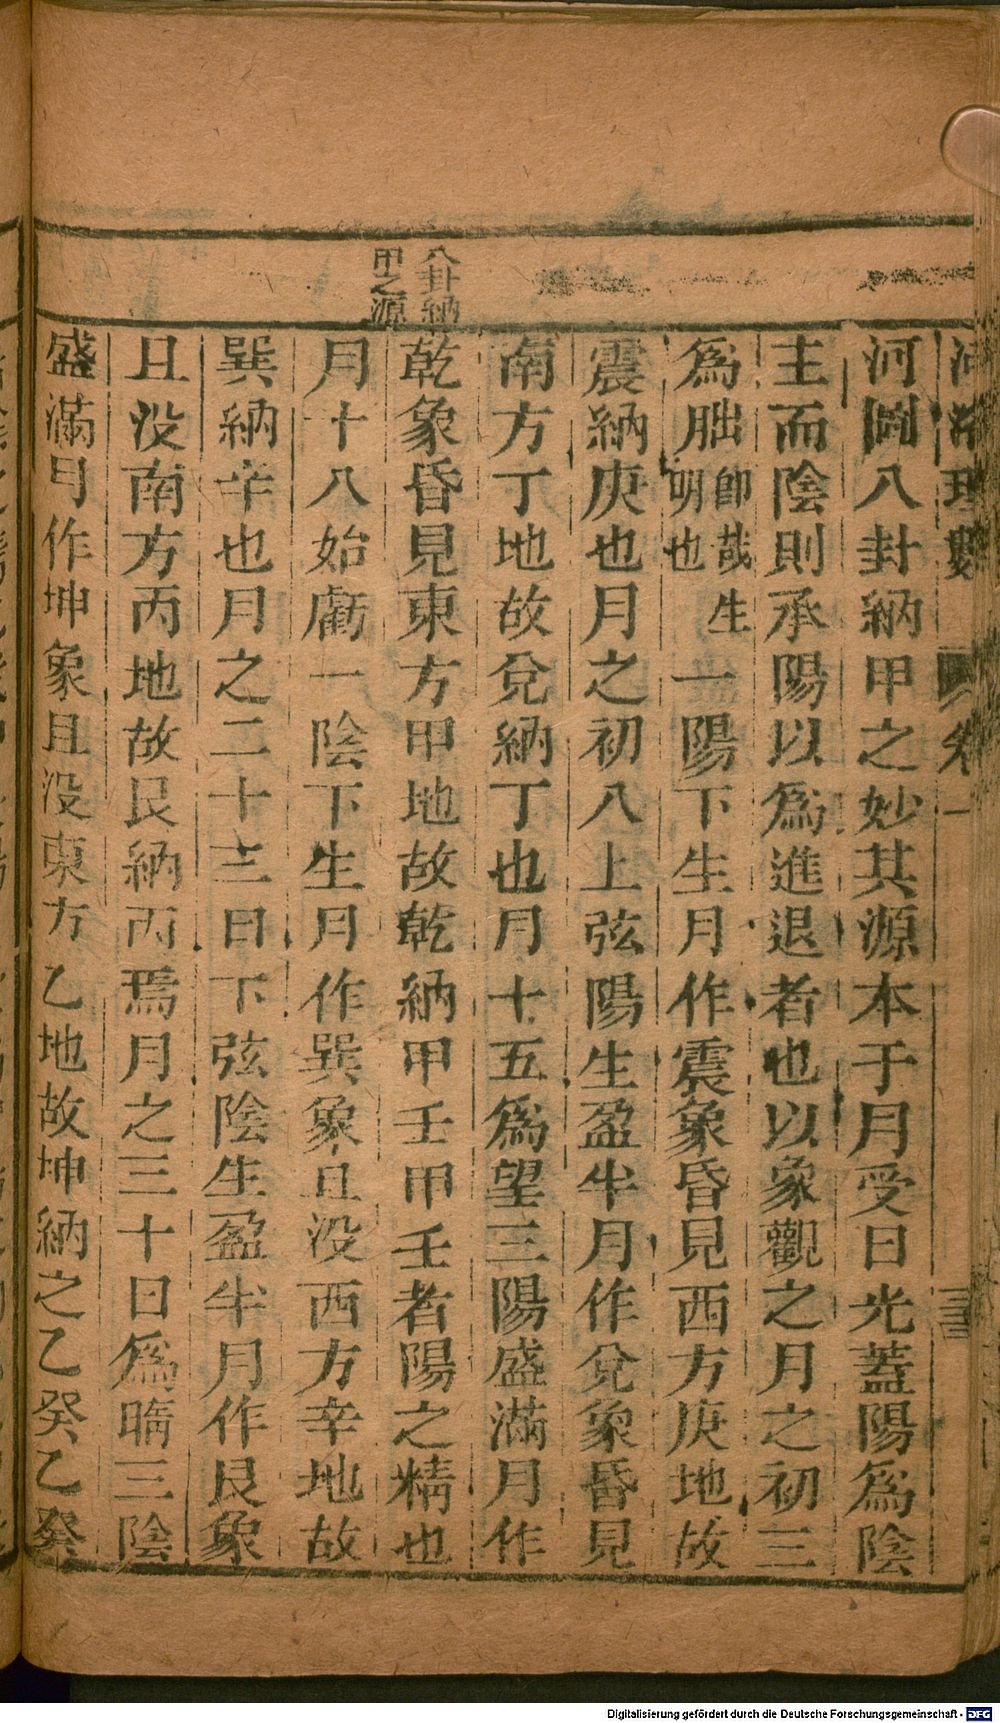 河洛理數 卷一
河圖八卦納甲之妙其源本于月受日光蓋陽爲陰
主而陰則承陽以爲進退者也以象觀之月之初三
爲朏卽哉生明也一陽下生月作震象昏見西方庚地故
震納庚也月之初八上弦陽生盈半月作兌象昏見
南方丁地故兌納丁也月十五爲望三陽盛滿月作
八卦納
甲之源
乾象昏見東方甲地故乾納甲壬甲壬者陽之精也
月十八始虧一陰下生月作巽象且没西方辛地故
巽納辛也月之二十三日下弦陰生盈半月作艮象
且没南方丙地故艮納丙焉月之三十日爲晦三陰
盛滿月作坤象且没東方乙地故坤納之乙癸乙癸
Digitalisierung gefördert durch die Deutsche Forschungsgemeinschaft - DFG